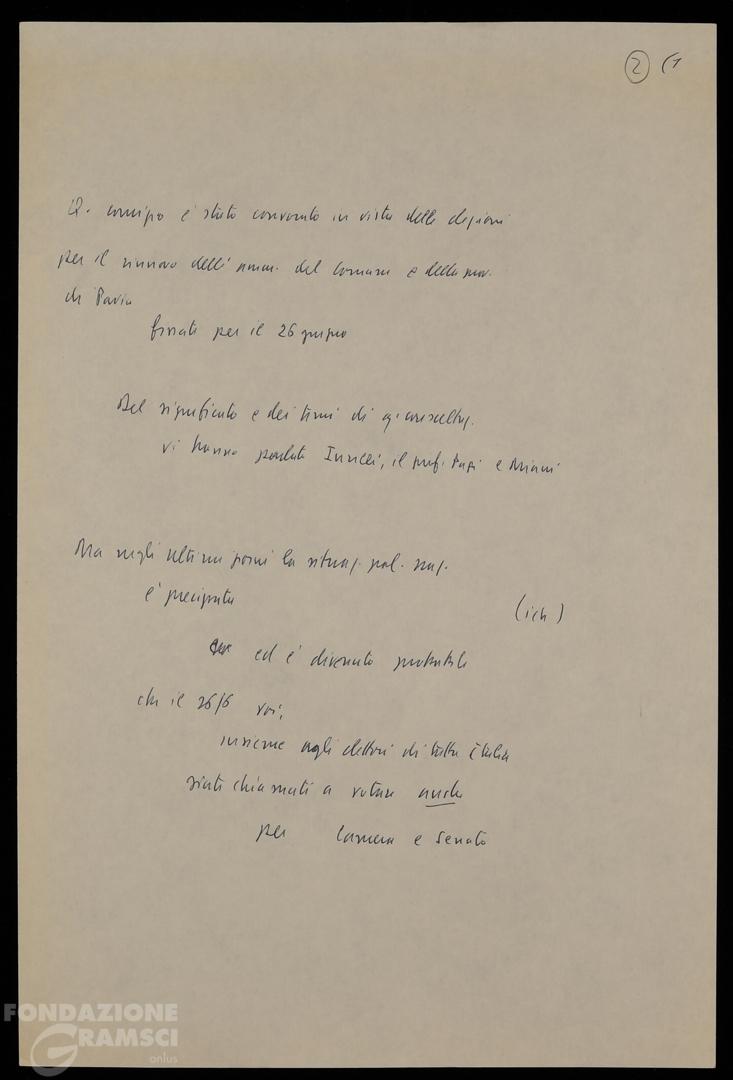 2 (1
Q. comizio è stato convocato in vista delle elezioni
per il rinnovo dell'amm. del Comune e della prov.
di Pavia
fissate per il 26 giugno
Del significato e dei temi di q. consultaz.
vi hanno parlato il prof. e
Ma negli ultimi giorni la situaz. pol. naz.
è precipitata
(ich)
ed è divenuto probabile
che il 26/6 voi,
insieme agli elettori di tutta Italia
siate chiamati a votare anche
per Camera e Senato
FONDAZIONE
GRAMSCI
onlus